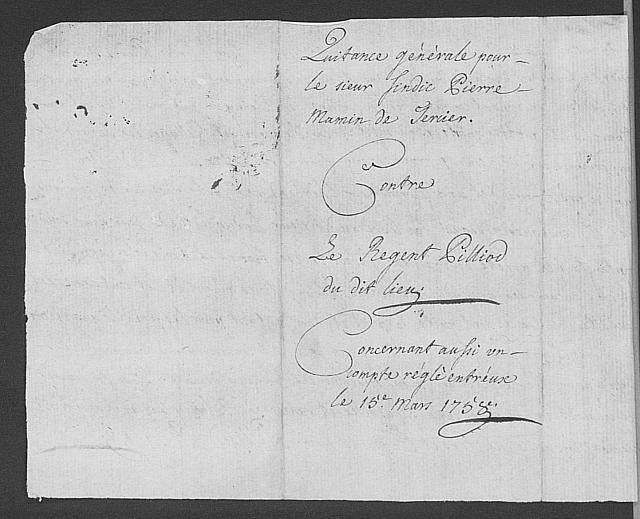 Quitance générale pour
le sieur sindic Pierre
Mamin de Tercier.
Contre
Le Regent Pilliod
du dit lieu;
Concernant aussi un
compte réglé entréux
le 15.e Mars 1758.